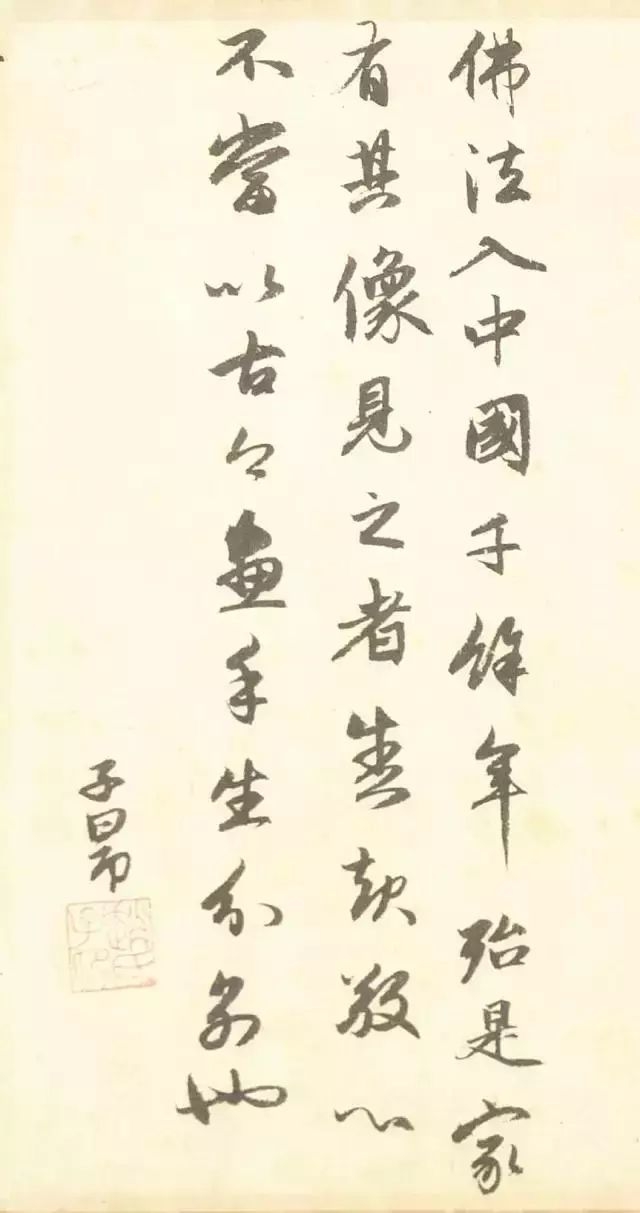 佛法入中國千餘年殆是家
有其像見之者悉起敬心
不當以古今畫手生分別也
子昂